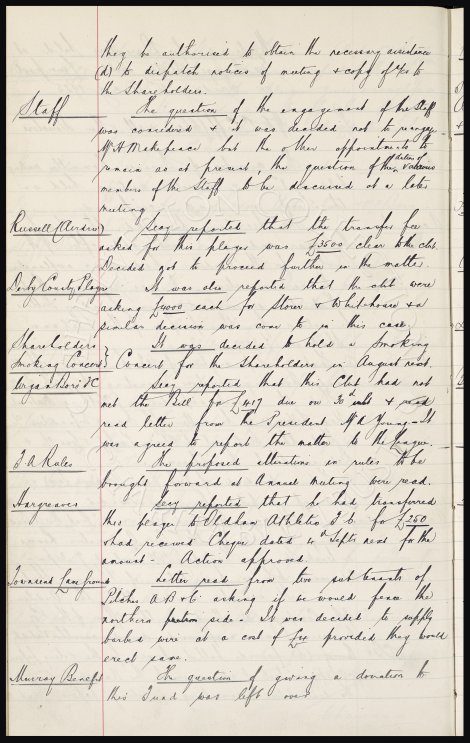 they be authorised to obtain the necessary assistance
(d) to dispatch notices of meeting & copy of a/c to
the Shareholders.
Staff
The question of the engagement of the Staff
was considered & it was decided not to reengage
W H Makepeace but the other appointments to
remain as at present, the question of the duties of various
members of the Staff to be discussed at a later
meeting
Russell (Airdrie)
Secy reported that the transfer fee
asked for this player was £3500 clear to the club.
Decided not to proceed further in the matter
Derby County Players
It was also reported that the club were
asking £4000 each for Storer & Whitehouse & a
similar decision was come to in this case
Shareholders
Smoking Concert
It was decided to hold a Smoking
Concert for the Shareholders in August next.
Secy reported that this Club had not
met the Bill for £417 due on 30th ult & read
read letter from the President Mr A Young - It
was agreed to report the matter to the League.
F A Rules
The proposed alterations in rules to be
brought forward at Annual Meeting were read.
Hargreaves
Secy reported that he had transferred
this player to Oldham Athletic F C for £250
& had received Cheque dated 4th Septr next for the
amount - Action approved.
Townsend Lane Ground
Letter read from two sub tenants of
Pitches A B & C asking if we would fence the
northern side. It was decided to supply
barbed wire at a cost of £4 provided they would
erect same.
Murray Benefit
The question of giving a donation to
this Fund was left over